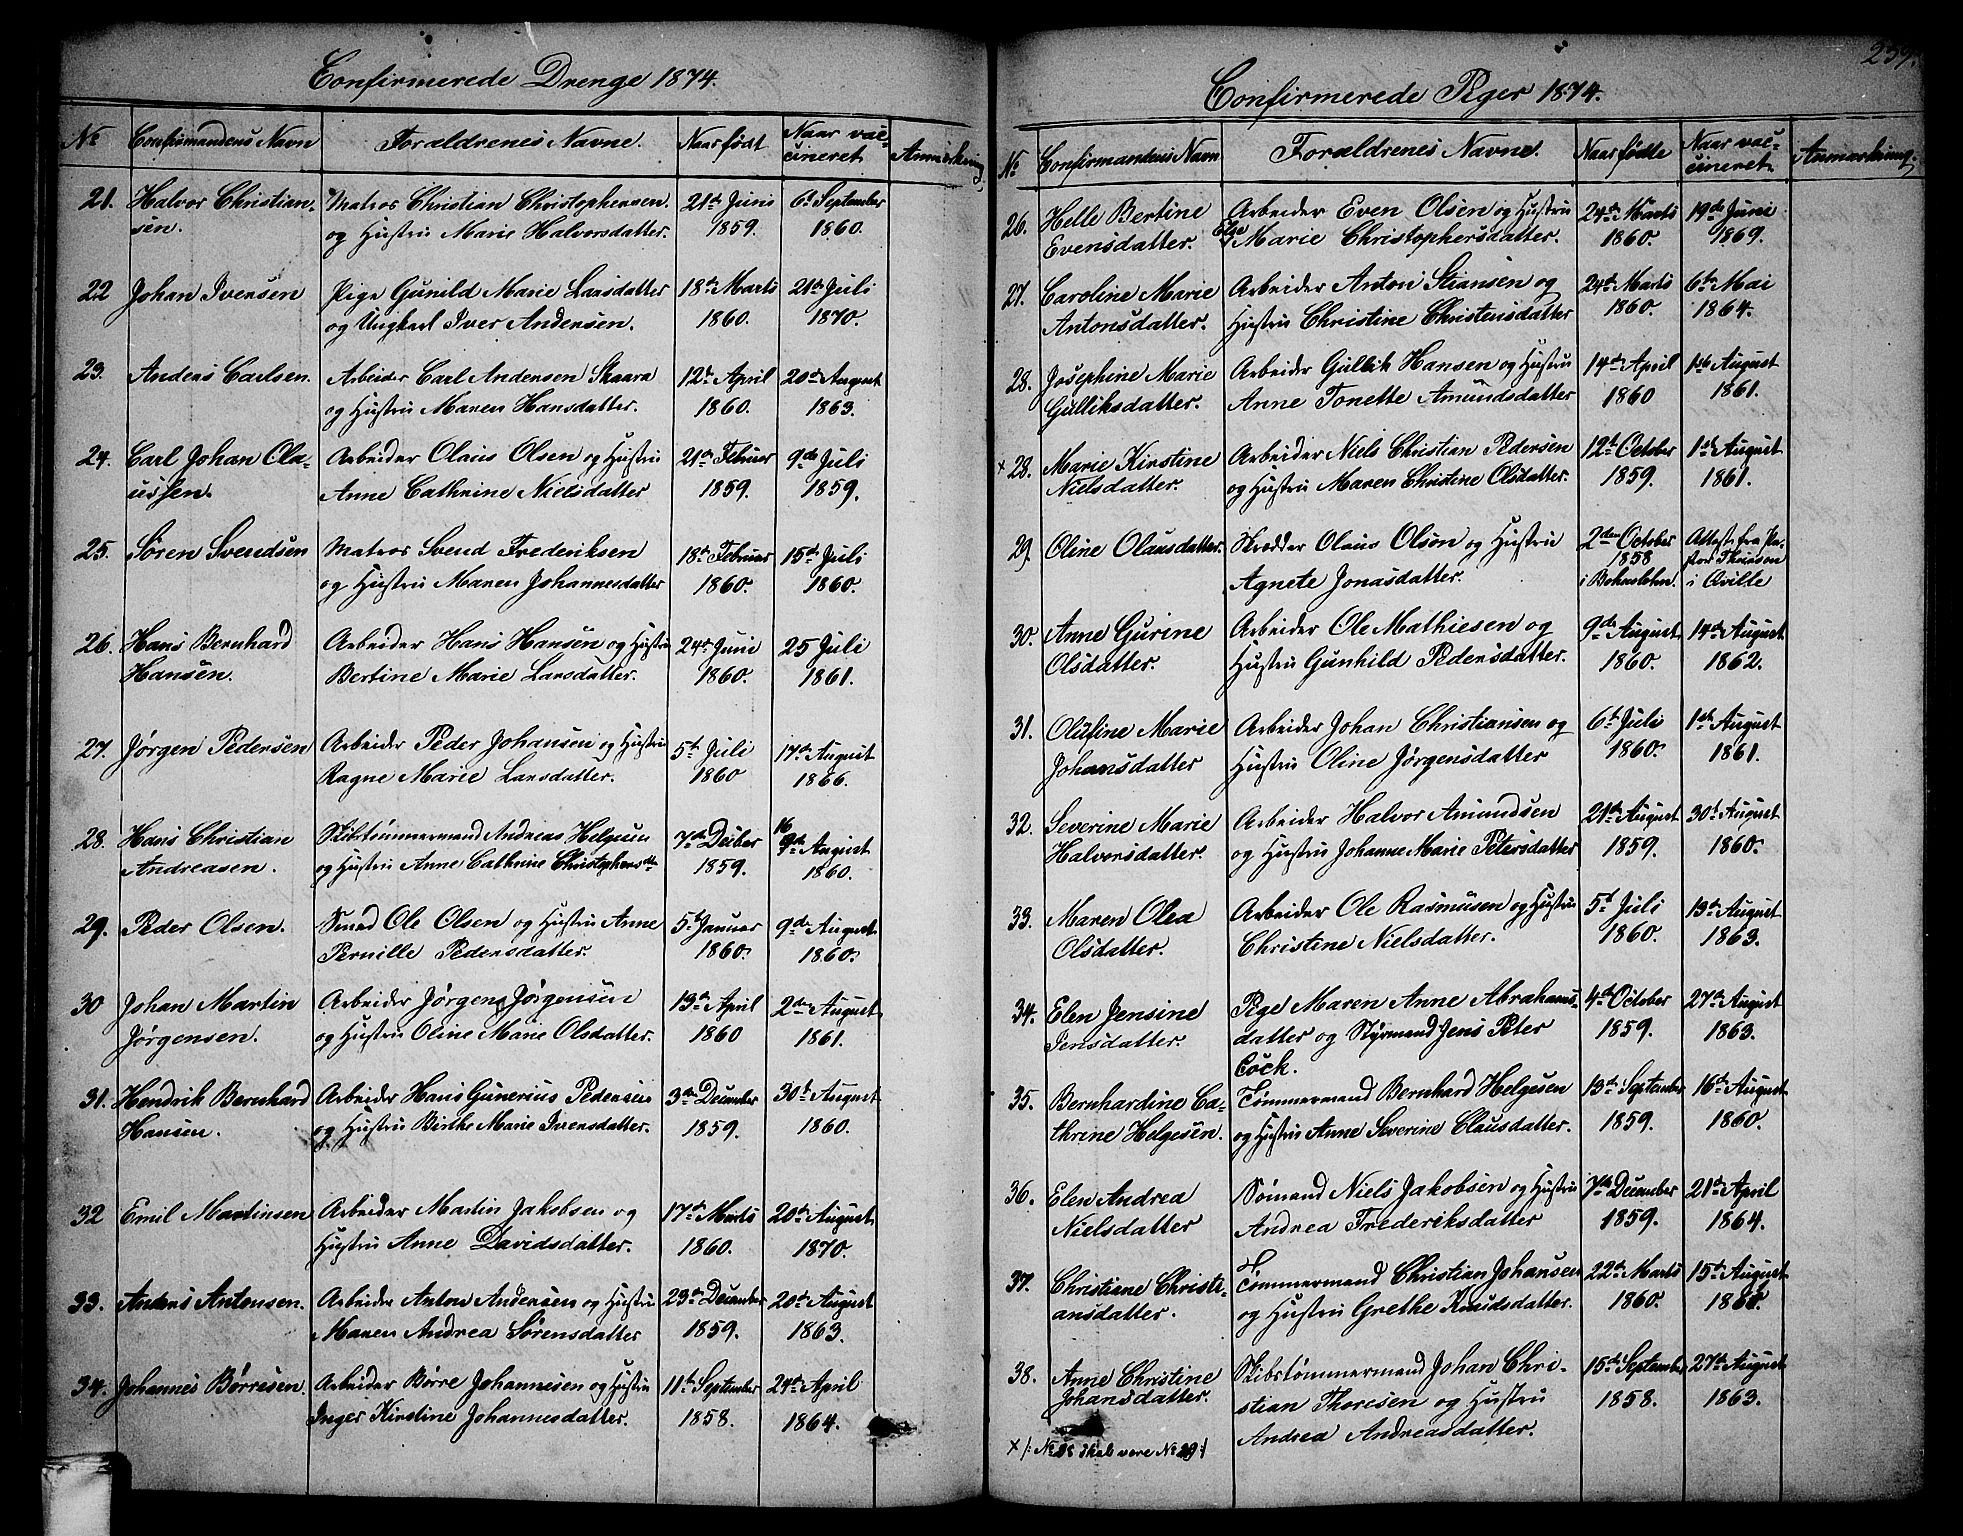 Confirmerede Drenge 1874.
No Confirmandens Navn Forældrenes Navne. Naar født Naar vac-
cineret Anmærkning
21. Halvor Christian- Matros Christian Christophersen 21de Juni 6te September
sen. og Hustru Marie Halvorsdatter. 1859. 1860.
22 Johan Iversen Pige Gunild Marie Larsdatter 18de Marts 21de Juli
og Ungkarl Iver Andersen. 1860. 1870.
23. Anders Carlsen. Arbeider Carl Andersen Skaara 12te April 20de August
og Hustru Maren Hansdatter. 1860. 1863.
24. Carl Johan Ola- Arbeider Olaus Olsen og Hustru 21de Februar 9de Juli
ussen. Anne Cathrine Nielsdatter 1859. 1859.
25. Søren Svendsen Matros Svend Frederiksen 18de Februar 15de Juli
og Hustru Maren Johannesdatter 1860. 1860.
26. Hans Bernhard Arbeider Hans Hansen og Hustru 24de Juni 25 Juli
Hansen. Bertine Marie Larsdatter. 1860. 1861.
27. Jørgen Pedersen Arbeider Peder Johansen og Hustru 5te Juli 17de August
Ragne Marie Larsdatter. 1860 1866.
28. Hans Christian Skibstømmermand Andreas Helgesen 7de Decbr 16 de August
Andreasen. og Hustru Anne Cathrine Christophersdtr 1859. 1860.
29. Peder Olsen. Smed Ole Olsen og Hustru Anne 5te Januar 9de August
Pernille Pedersdatter. 1860. 1860.
30 Johan Martin Arbeider Jørgen Jørgensen 13de April 2den August
Jørgensen. og Hustru Oline Marie Olsdatter. 1860 1861.
31. Hendrik Bernhard Arbeider Hans Gunerius Pedersen 3de December 30te August
Hansen. og Hustru Birthe Marie Iversdatter. 1859. 1860.
32 Emil Martinsen Arbeider Martin Jakobsen og 17de Marts 20de August
Hustru Anne Davidsdatter. 1860. 1870.
33. Anders Antonsen. Arbeider Anton Andersen og Hustru 23de December 20de August
Maren Andrea Sørensdatter 1859. 1863.
34. Johannes Børresen. Arbeider Børre Johannesen og Hustru 11te September 24de April
Inger Kirstine Johannesdatter. 1858. 1864.
259.
Confirmerede Piger 1874.
No Confirmandens Navn Forældrenes Navne. Naar fødte Naar vac-
cineret. Anmærkning.
26. Helle Bertine Arbeider Even Olsen og Hustru 24de Marts 19de Juni
Evensdatter. Else Marie Christophersdatter. 1860. 1869.
27. Caroline Marie Arbeider Anton Stiansen og 24de Marts 6te Mai
Antonsdatter. Hustru Christine Christensdatter 1860. 1864.
28. Josephine Marie Arbeider Gullik Hansen og Hustru 14de April 1ste August
Gulliksdatter. Anne Tonette Amundsdatter 1860 1861.
x 28. Marie Kirstine Arbeider Niels Christian Pedersen 12te October 1ste August
Nielsdatter. og Hustru Maren Christine Olsdatter. 1859. 1861.
29. Oline Olausdatter. Skrædder Olaus Olson og Hustru 2den October Attest fra Pa-
Agnete Jonasdatter. 1858 stor
i i Qville
30. Anne Gurine Arbeider Ole Mathiesen og 9de August 14de August
Olsdatter. Hustru Gunhild Pedersdatter. 1860. 1862.
31. Olufine Marie Arbeider Johan Christiansen og 6te Juli 1ste August
Johansdatter Hustru Oline Jørgensdatter 1860. 1861.
32. Severine Marie Arbeider Halvor Amundsen 21de August 30te August
Halvorsdatter. og Hustru Johanne Marie Petersdatter 1859. 1860.
33. Maren Olea Arbeider Ole Rasmusen og Hustru 5te Juli 13de August
Olsdatter. Christine Nielsdatter. 1860. 1863.
34. Elen Jensine Pige Maren Anne Abrahams- 4de October 27de August
Jensdatter. datter og Styrmand Jens Peter 1859. 1863.
Cock.
35. Bernhardine Ca- Tømmermand Bernhard Helgesen 13de September 16te August
thrine Helgesen. og Hustru Anne Severine Clausdatter. 1859. 1860.
36. Elen Andrea Sømand Niels Jakobsen og Hustru 7de December 21de April
Nielsdatter Andrea Frederiksdatter 1859. 1864.
37. Christiane Christi- Tømmermand Christian Johansen 22de Marts 15de August
ansdatter. og Hustru Grethe Knudsdatter. 1860.
38. Anne Christine Skibstømmermand Johan Chri- 15de September 27de August
Johansdatter. stian Thoresen og Hustru 1858. 1863.
Andrea Andreasdatter.
x /: No 28 skal være No 29 :/